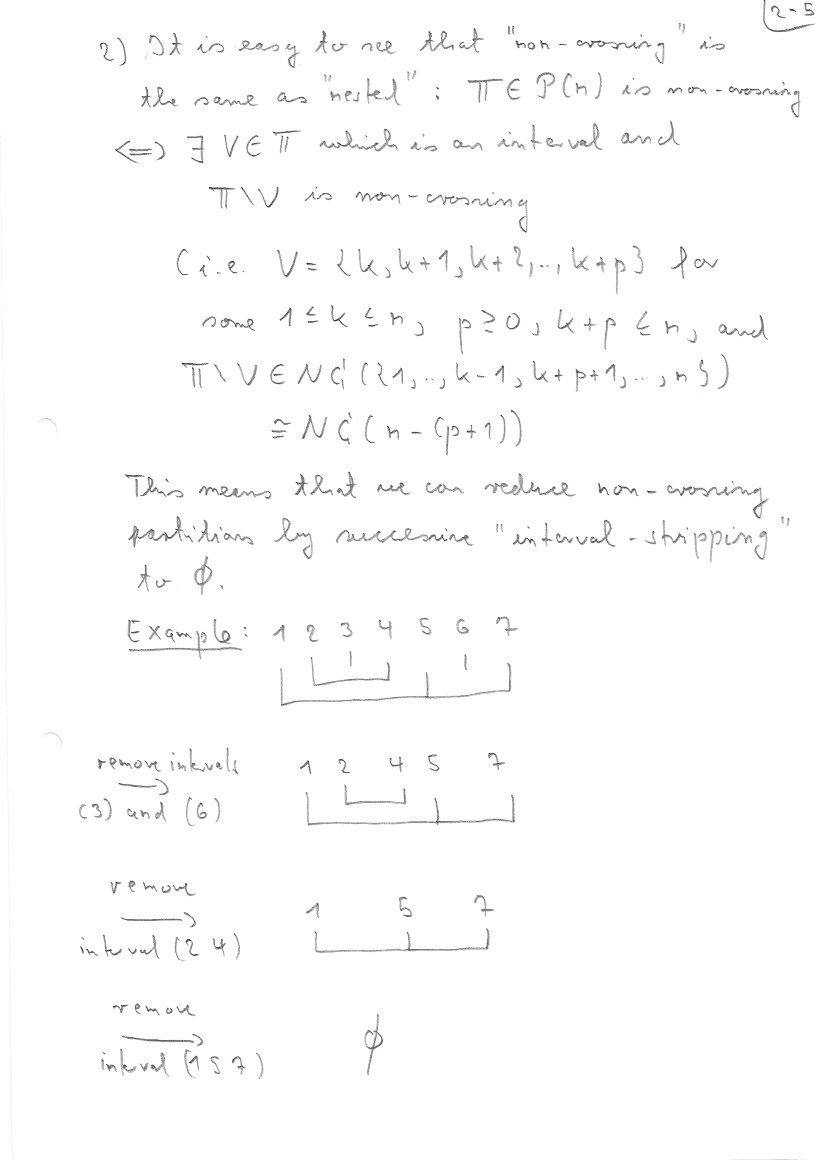 2-5
2) It is easy to see that "non-crossing" is
the same as "nested": π ∈ P(n) is non-crossing
⟺ ∃ V ∈ π which is an interval and
π\V is non-crossing
(i.e. V = {k, k+1, k+2,.., k+p} for
some 1 ≤ k ≤ n, p ≥ 0, k+p ≤ n, and
π\V ∈ NC({1,.., k-1, k+p+1,..., n})
≅ NC(n-(p+1))
This means that we can reduce non-crossing
partitions by successive "interval-stripping"
to ∅.
Example: 1 2 3 4 5 6 7
remove intervals 1 2 4 5 7
→
(3) and (6)
remove
→ 1 5 7
interval (2 4)
remove
→ ∅
interval (1 5 7)